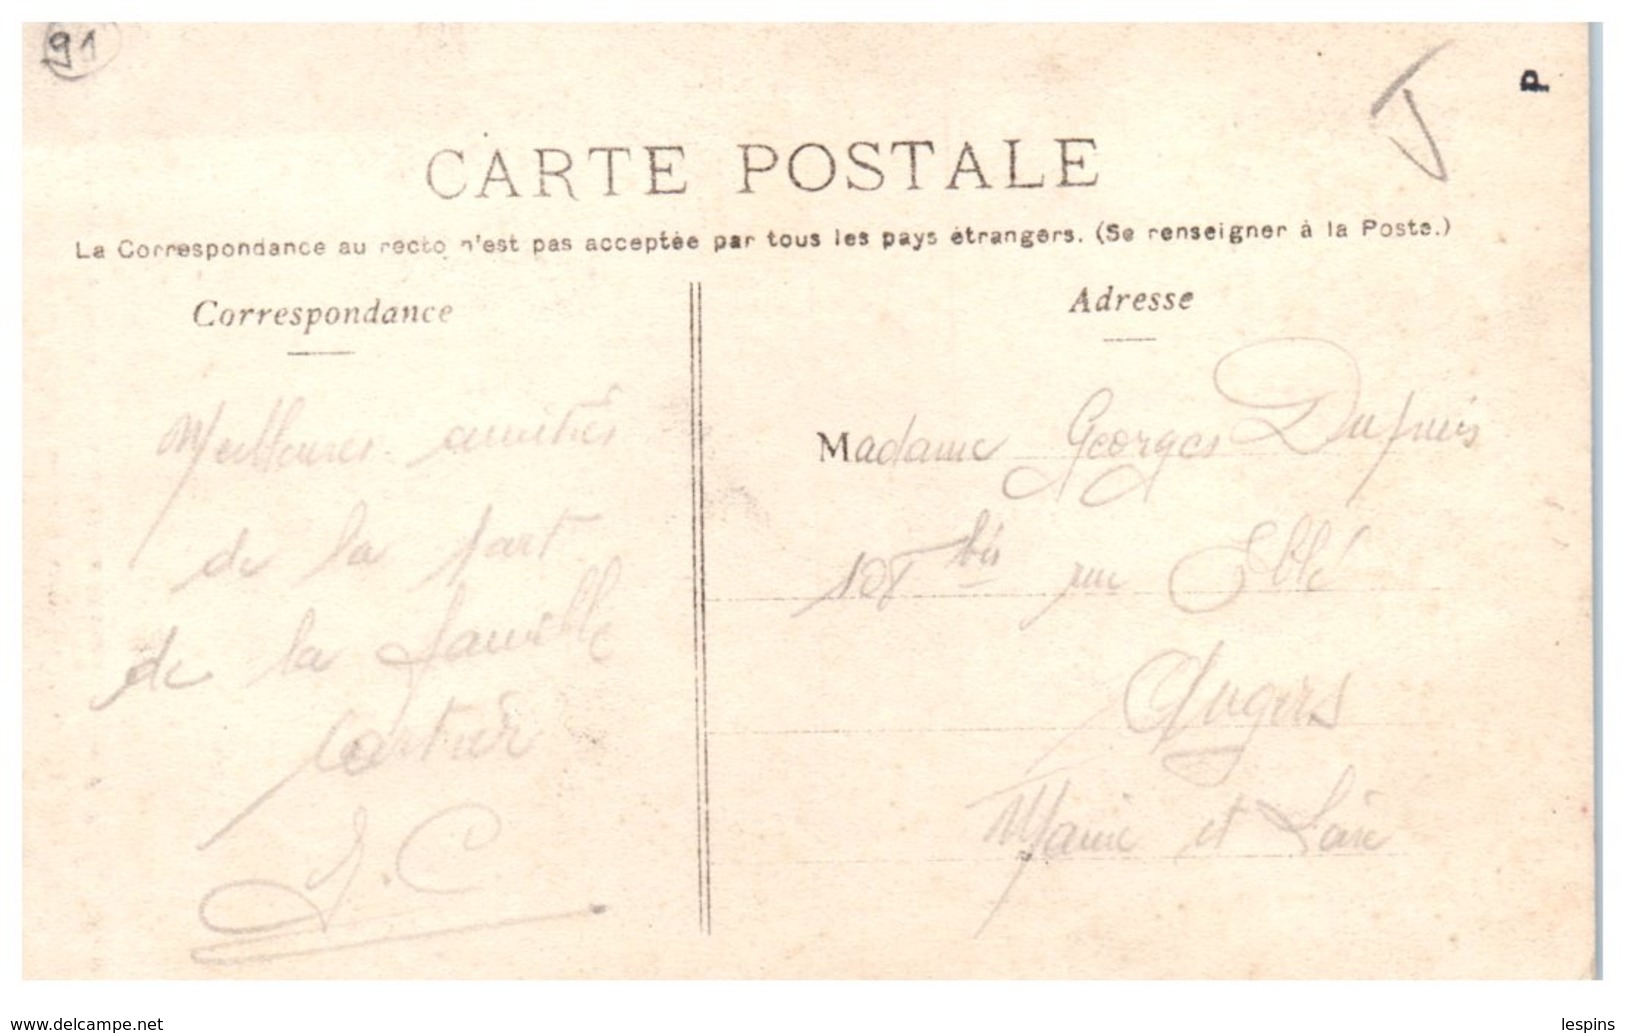 91
J
P
CARTE POSTALE
La Correspondance au recto n'est pas acceptée par tous les pays étrangers. (Se renseigner à la Poste.)
Correspondance
Meilleures amitiés
de la part
de la famille
Cartier
J. C.
Adresse
Madame Georges Dupuis
108 bis rue Eblé
Angers
Maine et Loire
www.delcampe.net
lespins